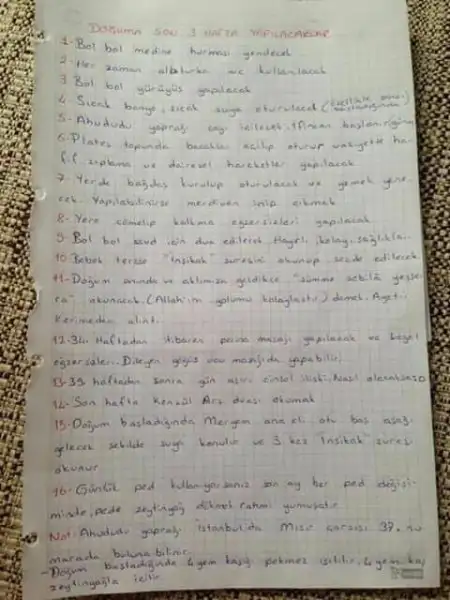 DOĞUMA SON 3 HAFTA YAPILACAKLAR
1- Bol bol medine hurması yenilecek
2- Her zaman alaturka wc kullanılacak
3 Bol bol yürüyüş yapılacak
4- Sıcak banyo, sıcak suya oturulacak (özellikle
5- Ahududu yaprağı çayı içilecek, 1 fincan
6- Plates topunda bacaklar açılıp oturup vaziyette ha-
fif zıplama ve dairesel hareketler yapılacak
7- Yerde bağdaş kurulup oturulacak ve yemek yene-
cek. Yapılabilinirse merdiven inip çıkmak
8- Yere çömelip kalkma egzersizleri yapılacak
9- Bol bol için dua edilecek. Hayırlı, kolay, sağlıklı..
10 Bebek tersse "İnşikak" suresini okunup secde edilecek
11- Doğum anında ve aklımıza geldikçe "sümme sebilâ yesse-
ra" okunacak. (Allah'ım yolumu kolaylaştır) demek. Ayeti
Kerimeden alıntı.
12- Haftadan itibaren masajı yapılacak ve
egzersizleri. Dileyen göğüs ucu masajıda yapabilir.
13- 39 haftadan sonra gün aşırı cinsel ilişki.
14- Son hafta Kenzül Arş duası okumak
15- Doğum başladığında Meryem ana eli otu baş aşağı
gelecek şekilde suya konulur ve 3 kez "İnşikak" suresi
okunur
16- Günlük ped kullanıyorsanız son ay her ped değişi-
minde, pede zeytinyağ dökmek rahmi yumuşatır.
Not: Ahududu yaprağı İstanbul'da Mısır çarşısı 37. nu
marada bulunabilinir.
- Doğum başladığında 4 yem. kaşığı pekmez ısıtılır, 4 yem kaş
zeytinyağla içilir